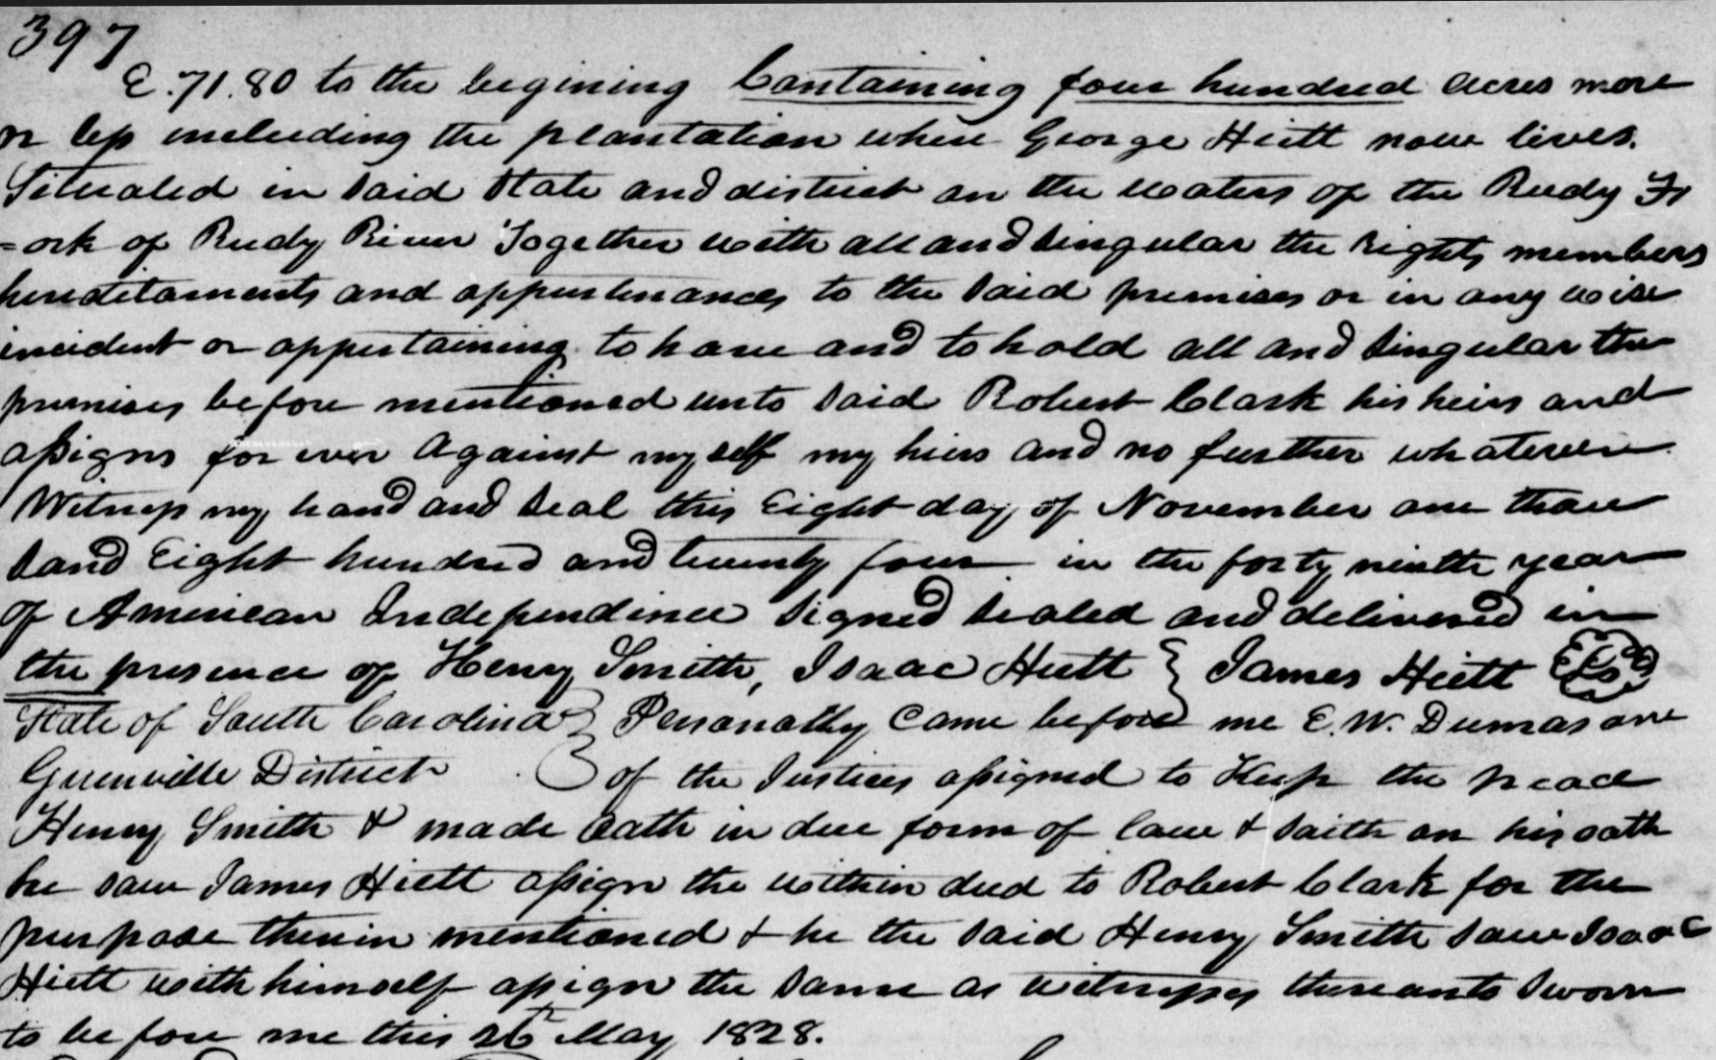 397
E. 71.80 to the begining Containing four hundred acres more
or less including the plantation where George Hiett now lives.
Situated in said State and district on the waters of the Reedy Fr
=ork of Reedy River Together with all and singular the rights members
hereditaments and appurtenances to the said premises or in any wise
incident or appertaining to have and to hold all and singular the
premises before mentioned unto said Robert Clark his heirs and
assigns for ever against my self my hiers and no further whatever
Witness my hand and seal this Eight day of November one thou
sand Eight hundred and twenty four in the forty ninth year
of American Independence Signed sealed and delivered in
the presence of Henry Smith, Isaac Hiett } James Hiett (LS)
State of South Carolina } Personally Came before me E. W. Dumas one
Greenville District } of the Justices assigned to Keep the peace
Henry Smith & made oath in due form of law & saith on his oath
he saw James Hiett assign the within deed to Robert Clark for the
purpose therein mentioned & he the said Henry Smith saw Isaac
Hiett with himself assign the same as witnesses thereunto Sworn
to before me this 26th May 1828.